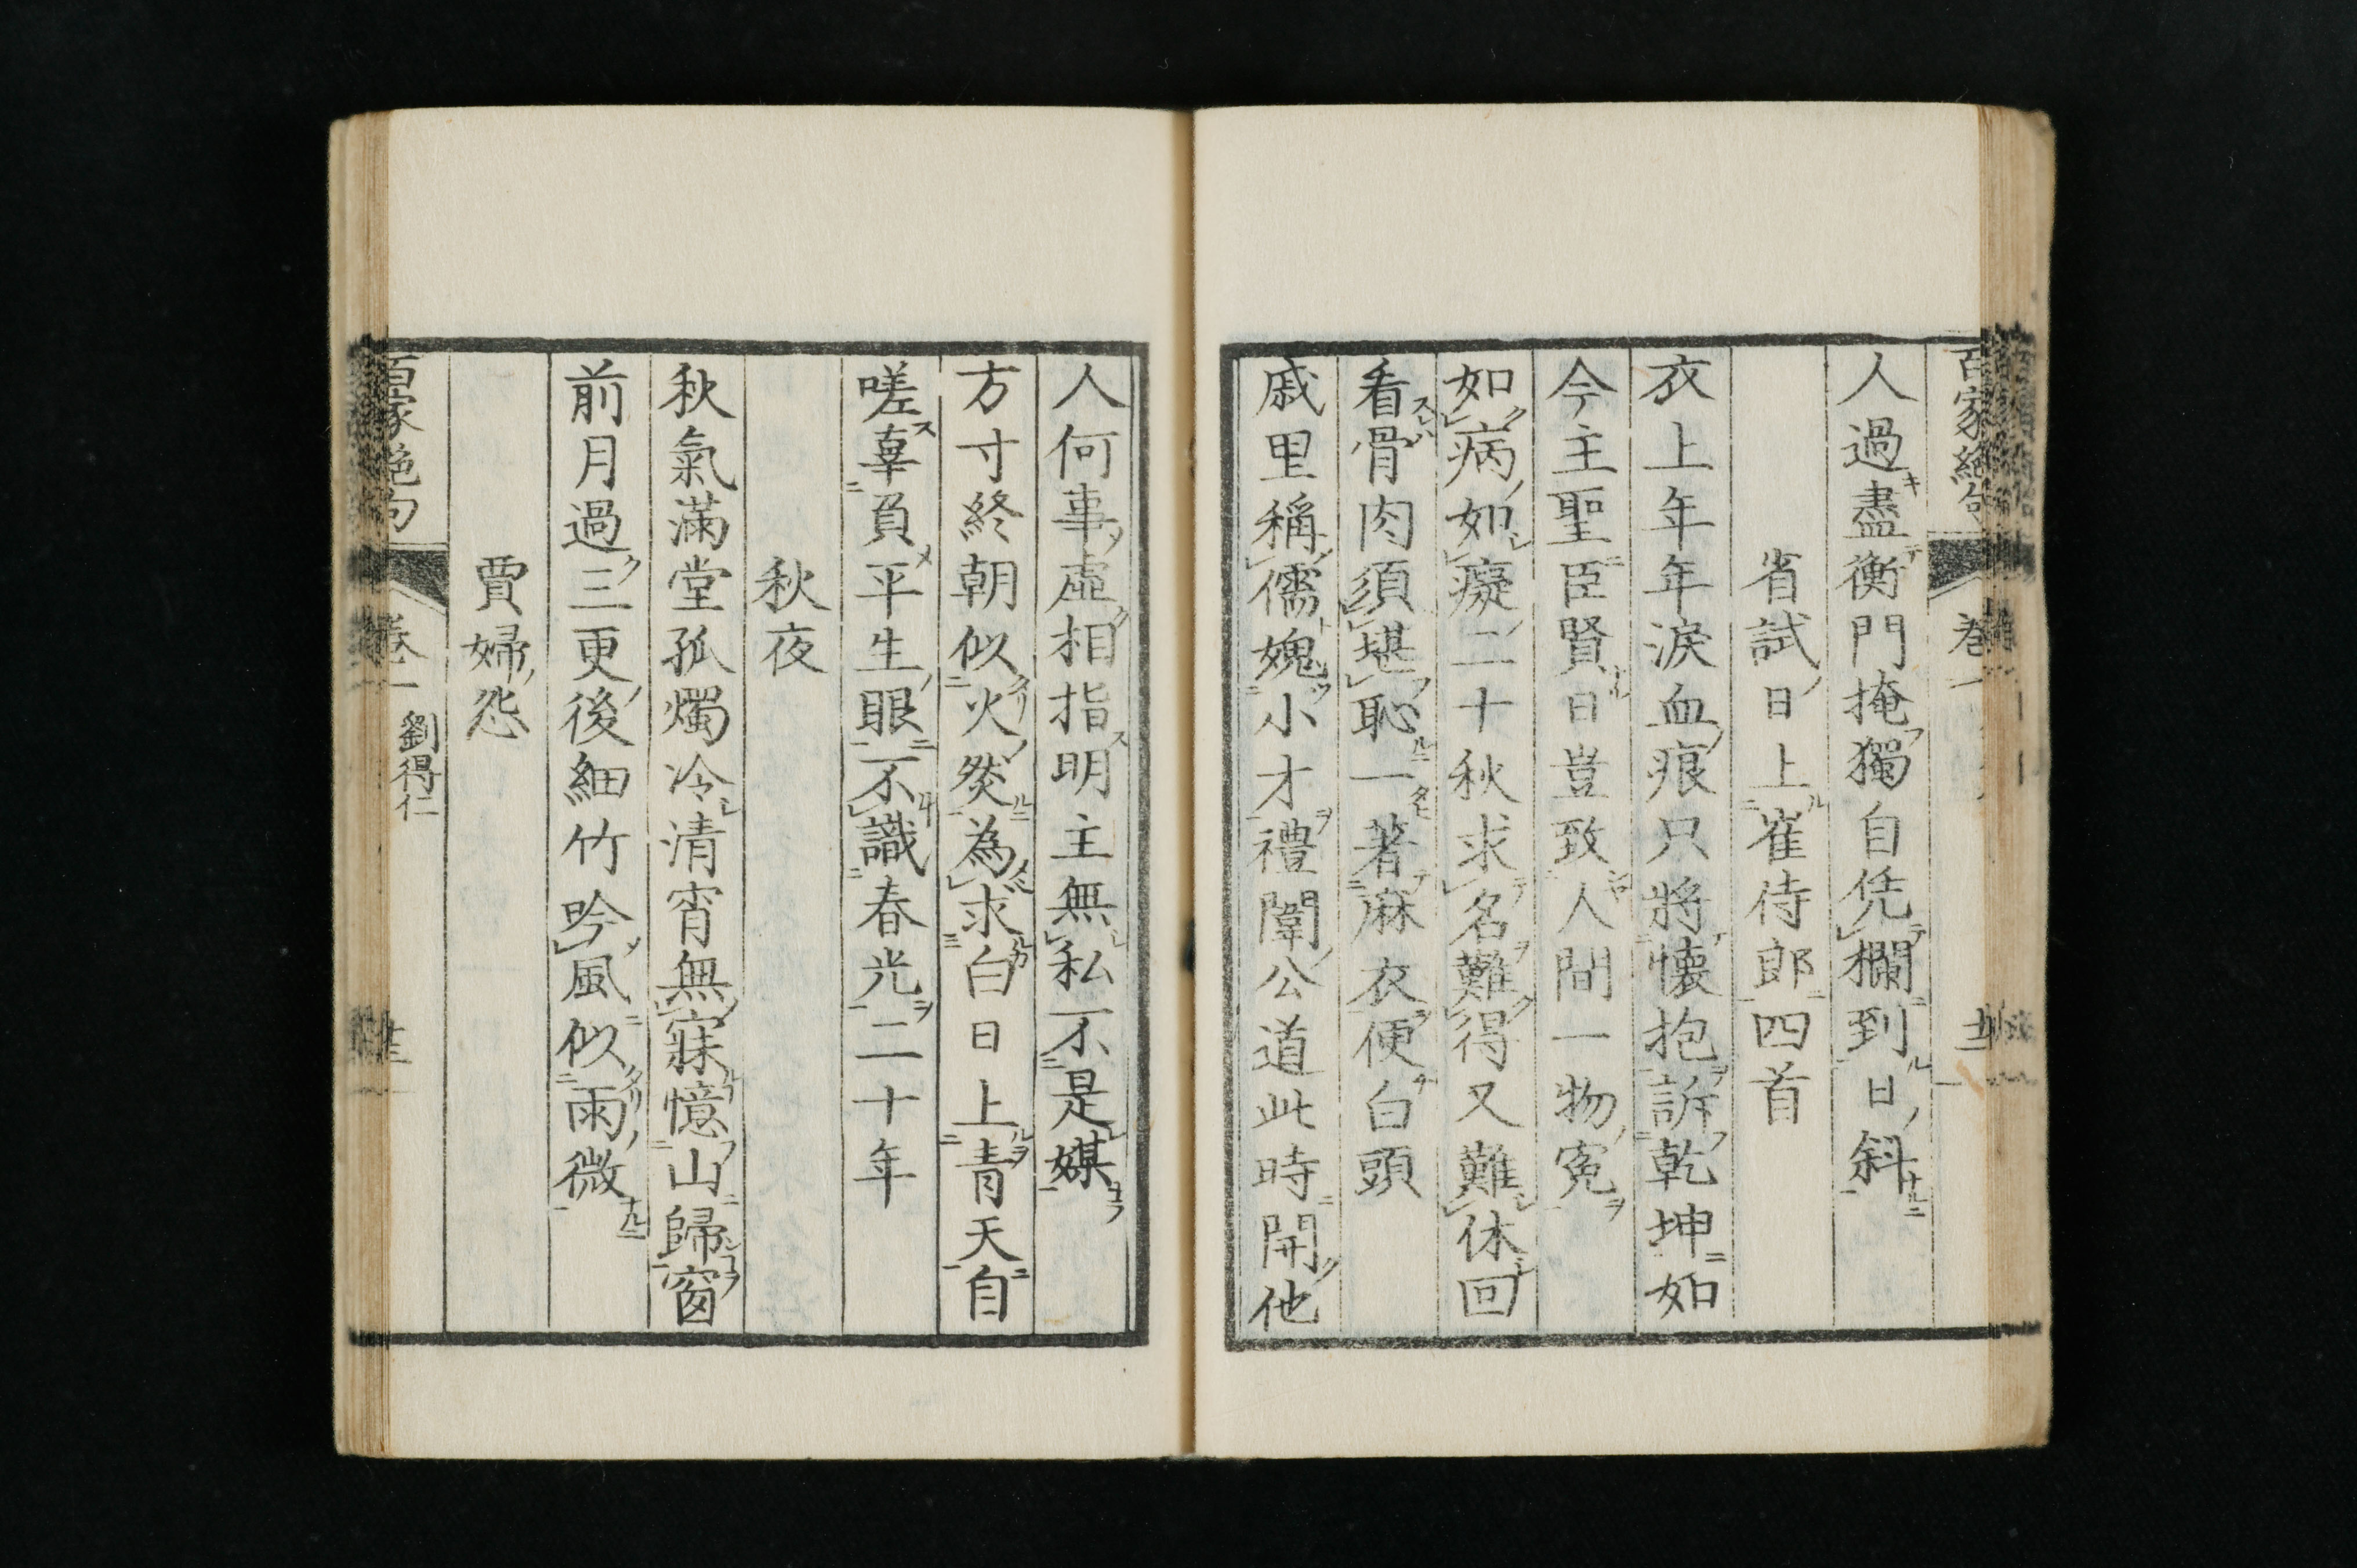 百家絶句 卷一
人過盡衡門掩獨自凭欄到日斜
省試日上崔侍郎四首
衣上年年淚血痕只將懷抱訴乾坤如
今主聖臣賢日豈致人間一物寃
如病如癡二十秋求名難得又難休回
看骨肉須堪恥一著麻衣便白頭
戚里稱儒媿小才禮闈公道此時開他
人何事虛相指明主無私不是媒
方寸終朝似火燃為求白日上青天自
嗟辜負平生眼不識春光二十年
秋夜
秋氣滿堂孤燭冷清宵無寐憶山歸窗
前月過三更後細竹吟風似雨微
賈婦怨
百家絶句 卷一 劉得仁